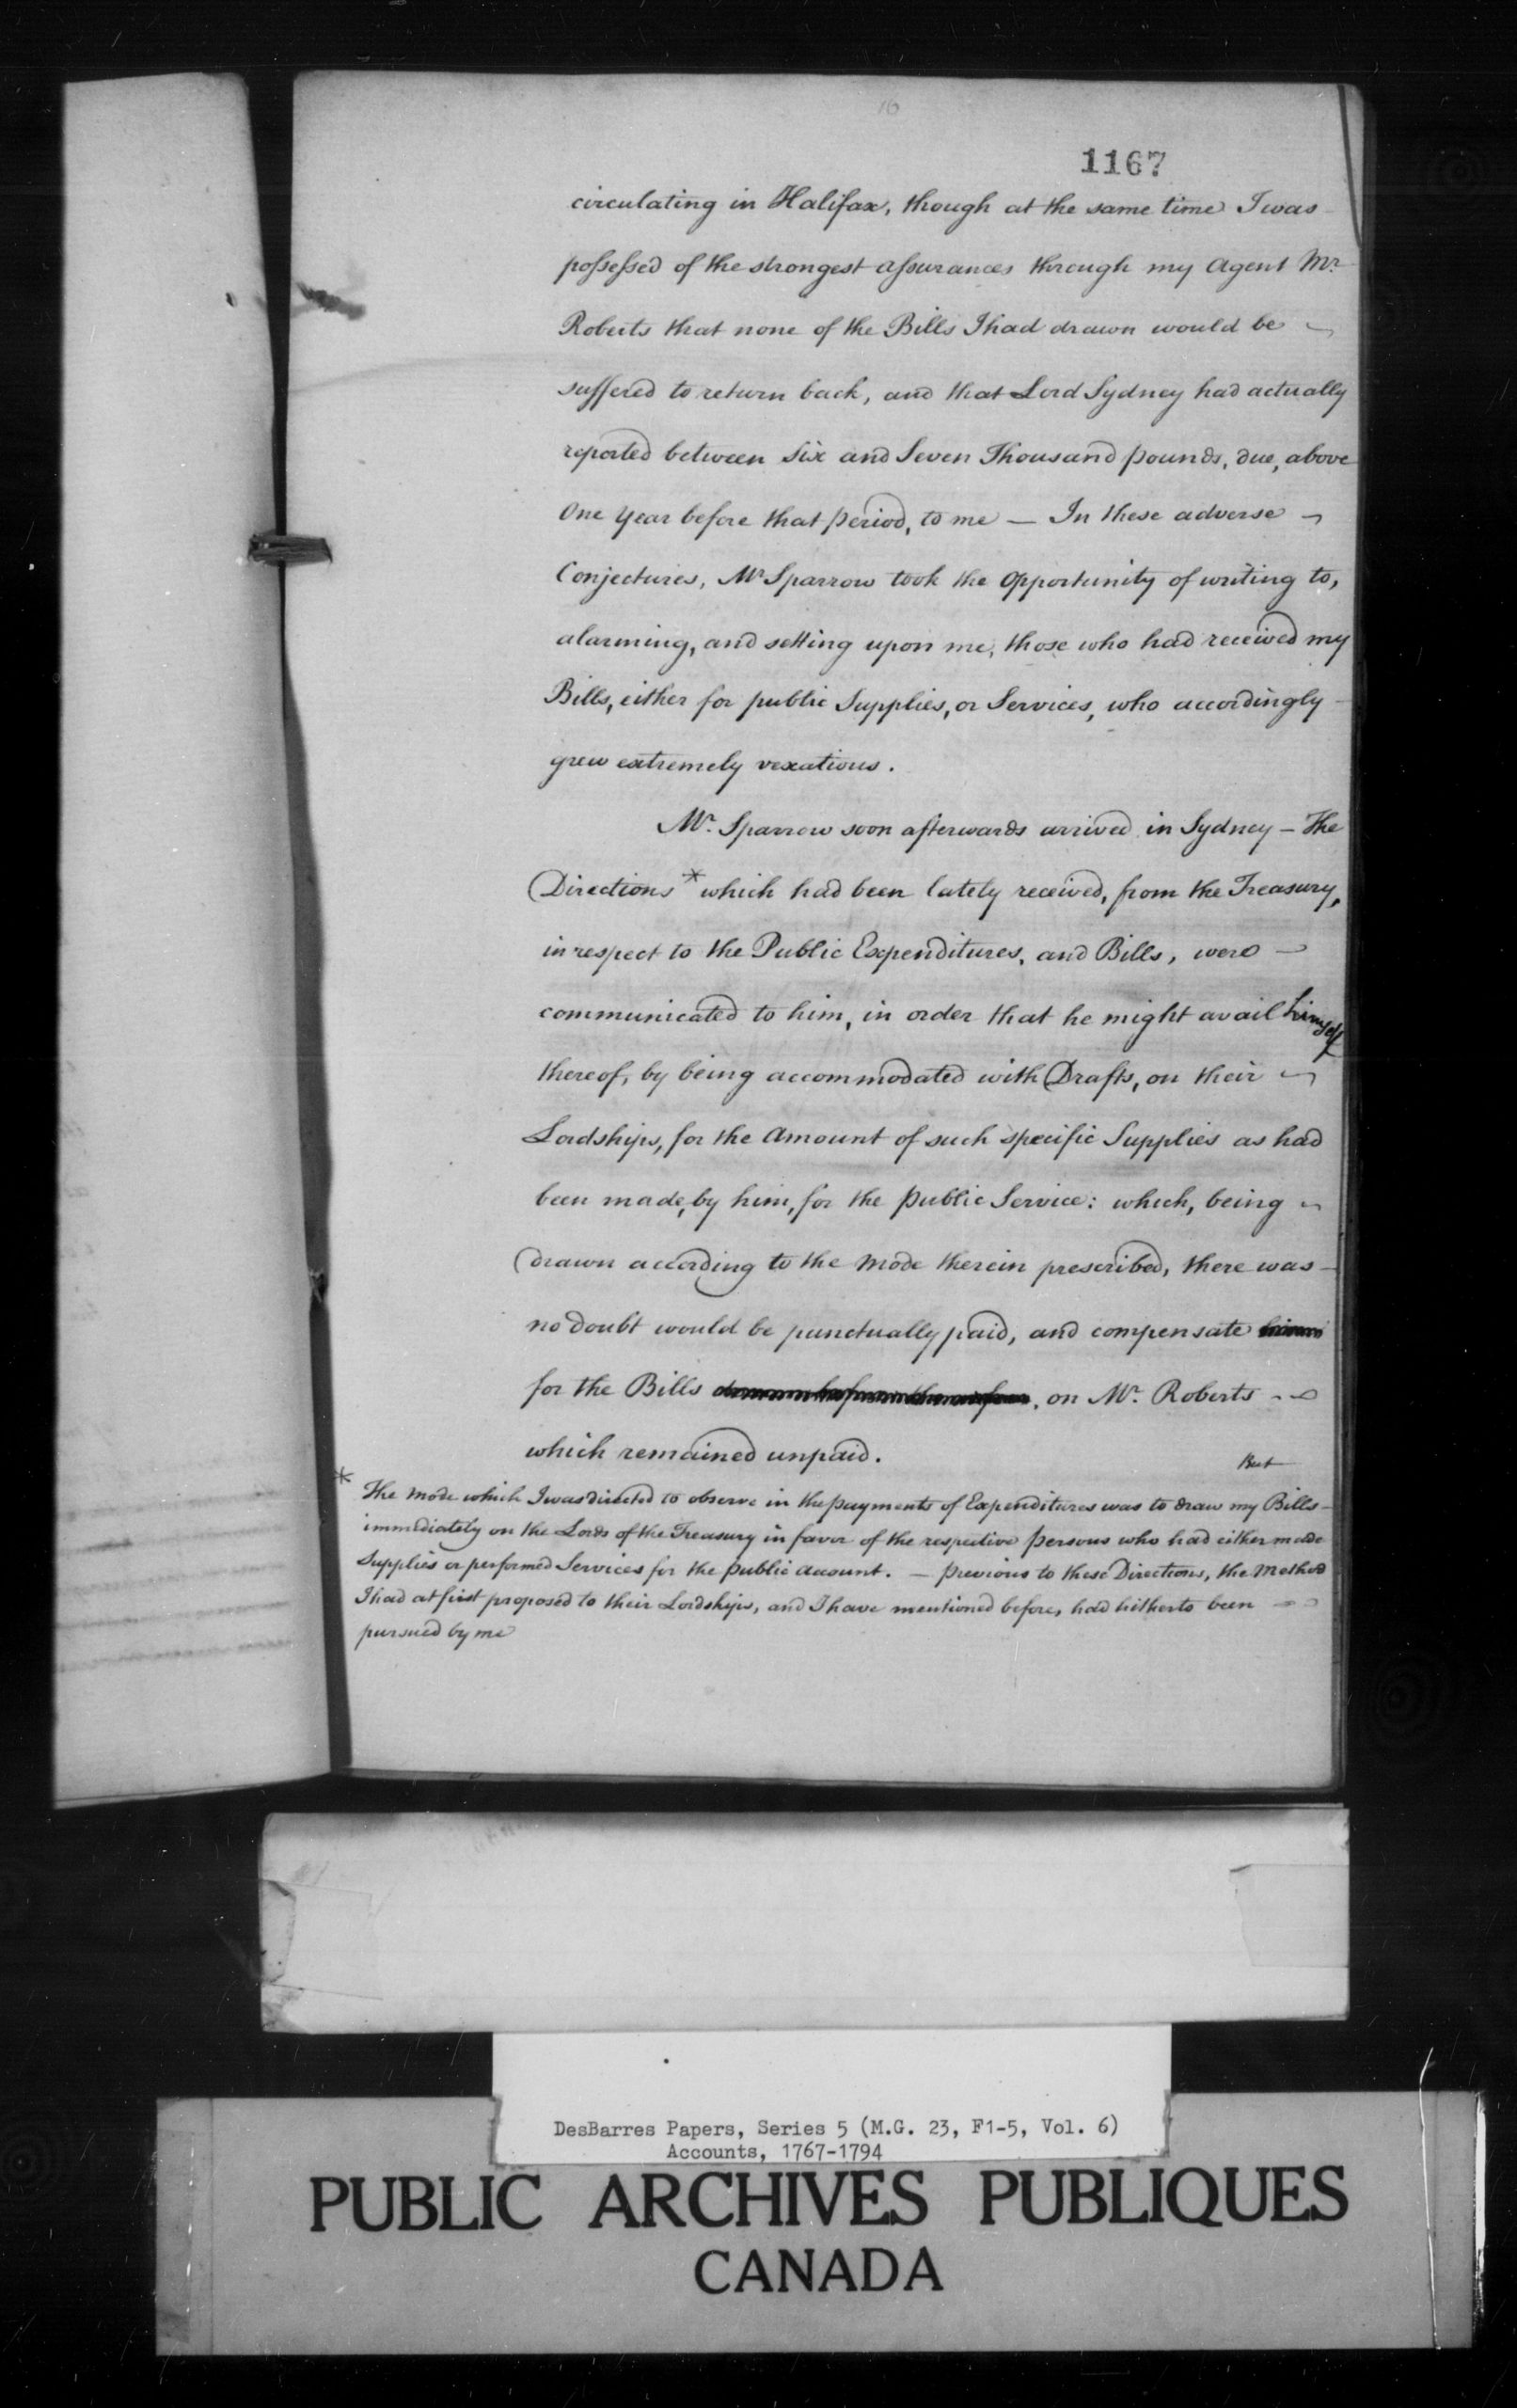 16
1167
circulating in Halifax, though at the same time I was
possessed of the strongest assurances through my Agent Mr.
Roberts that none of the Bills I had drawn would be
suffered to return back, and that Lord Sydney had actually
reported between Six and Seven Thousand pounds, due, above
One Year before that period, to me — In these adverse
Conjectures, Mr Sparrow took the Opportunity of writing to,
alarming, and setting upon me, those who had received my
Bills, either for public Supplies, or Services, who accordingly
grew extremely vexatious.
Mr. Sparrow soon afterwards arrived in Sydney — The
Directions * which had been lately received, from the Treasury,
in respect to the Public Expenditures, and Bills, were
communicated to him, in order that he might avail himself
thereof, by being accommodated with Drafts, on their
Lordships, for the Amount of such specific Supplies as had
been made, by him, for the public Service: which, being
drawn according to the Mode therein prescribed, there was
no doubt would be punctually paid, and compensate
for the Bills , on Mr. Roberts
which remained unpaid.
But
* The Mode which I was directed to observe in the payments of Expenditures was to draw my Bills
immediately on the Lords of the Treasury in favor of the respective persons who had either made
Supplies or performed Services for the public Account. — previous to these Directions, the Method
I had at first proposed to their Lordships, and I have mentioned before, had hitherto been
pursued by me
DesBarres Papers, Series 5 (M.G. 23, F1-5, Vol. 6)
Accounts, 1767-1794
PUBLIC ARCHIVES PUBLIQUES
CANADA